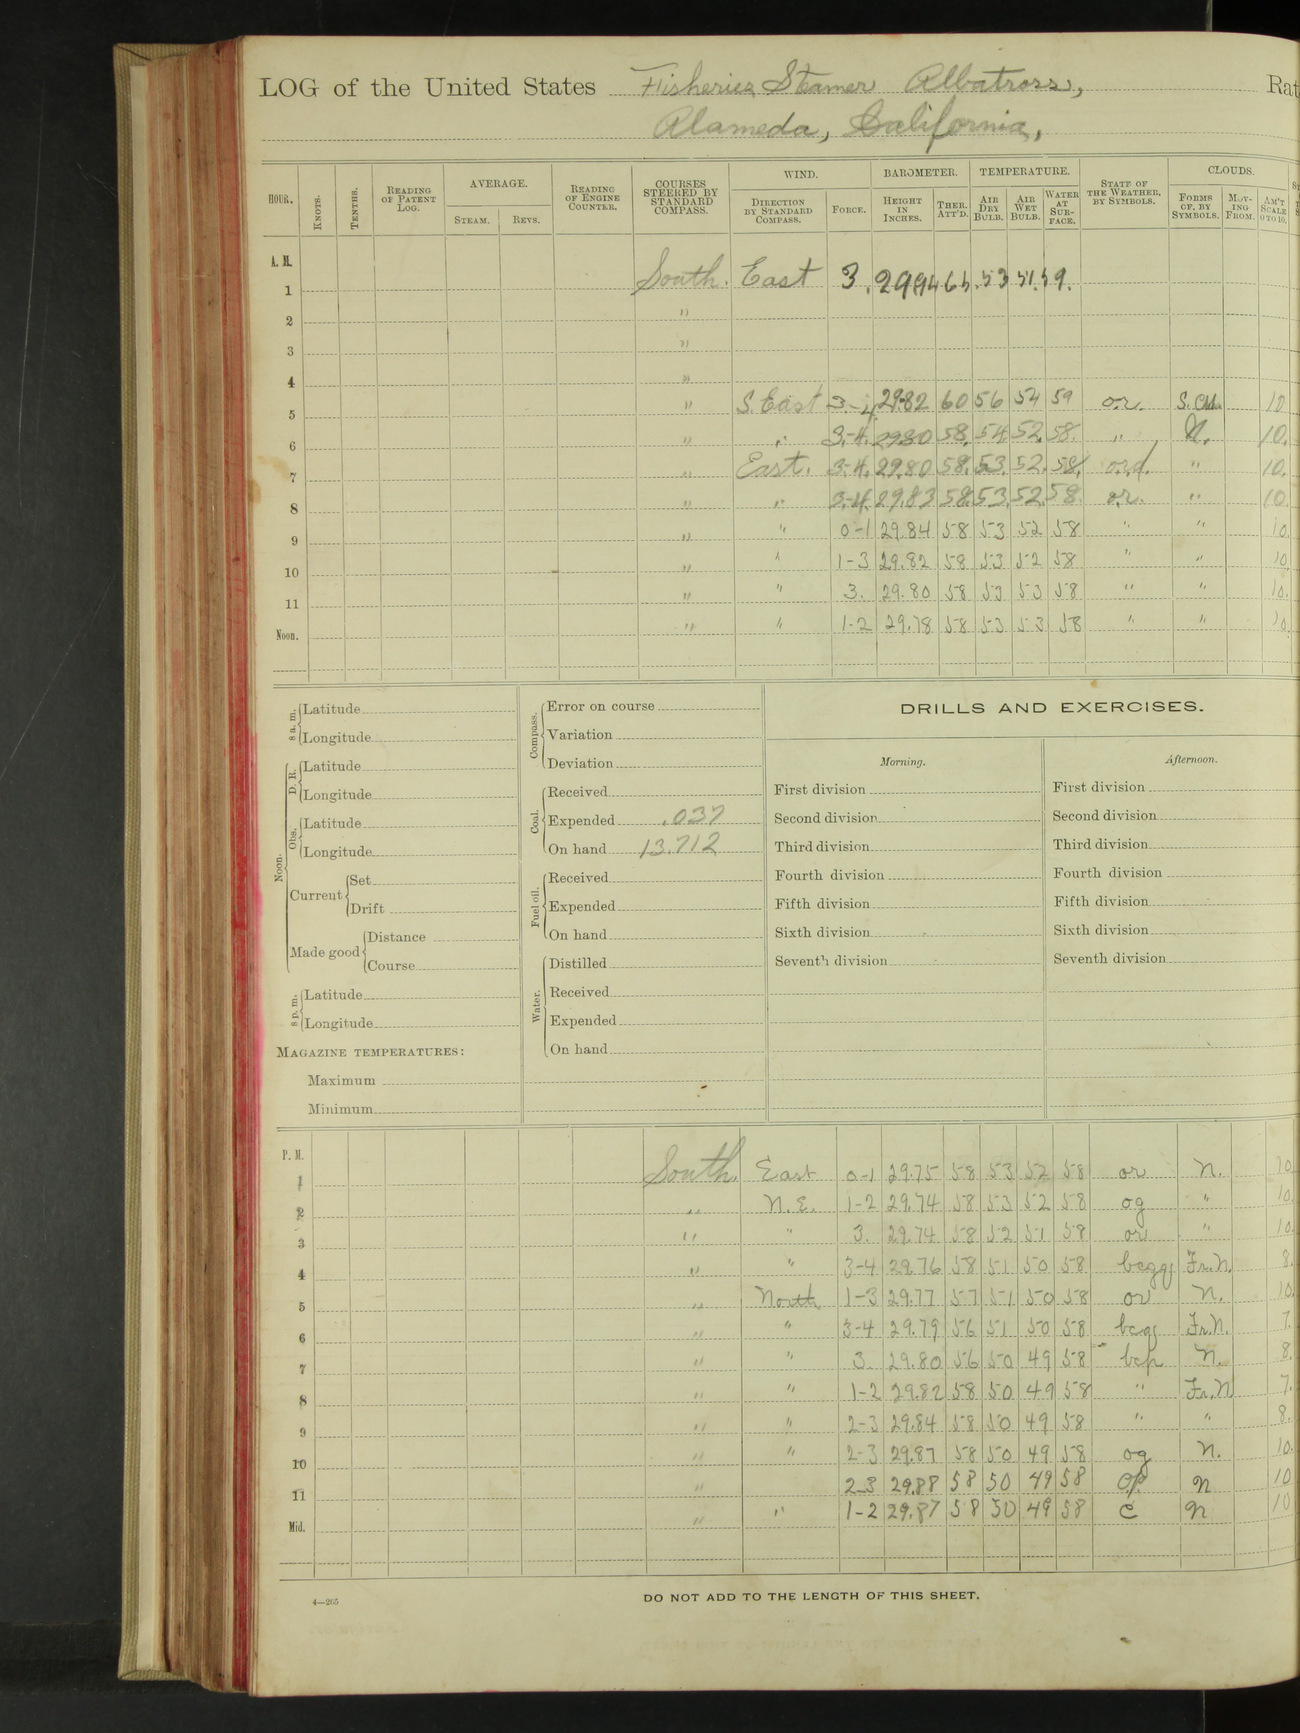 LOG of the United States Fisheries Steamer Albatross, Rat
Alameda, California,
HOUR. KNOTS. TENTHS. READING OF PATENT LOG. AVERAGE. STEAM. REVS. READING OF ENGINE COUNTER. COURSES STEERED BY STANDARD COMPASS. WIND. DIRECTION BY STANDARD COMPASS. FORCE. BAROMETER. HEIGHT IN INCHES. THER. ATT'D. TEMPERATURE. AIR DRY BULB. AIR WET BULB. WATER AT SURFACE. STATE OF THE WEATHER, BY SYMBOLS. CLOUDS. FORMS OF, BY SYMBOLS. MOVING FROM. AM'T SCALE 0 TO 10.
A. M.
1 South. East 3. 53 51. 59.
2 "
3 "
4 "
5 " S. East 3-4 29.82 60 56 54 59 o.r. S. Cu. 10
6 " " 3-4. 29.80 58. 54. 52. 58. " N. 10.
7 " East. 3-4. 29.80 58. 53. 52. 58. ord. " 10.
8 " " 3-4. 29.83 58. 53. 52. 58. o.r. " 10.
9 " " 0-1 29.84 58 53 52 58 " " 10.
10 " " 1-3 29.82 58 53 52 58 " " 10.
11 " " 3. 29.80 58 53 53 58 " " 10.
Noon. " " 1-2 29.78 58 53 53 58 " " 10.
8 a. m. Latitude
Longitude
Noon. D. R. Latitude
Longitude
Obs. Latitude
Longitude
Current Set
Drift
Made good Distance
Course
8 p. m. Latitude
Longitude
MAGAZINE TEMPERATURES:
Maximum
Minimum
Compass. Error on course
Variation
Deviation
Coal. Received
Expended .037
On hand 13.712
Fuel oil. Received
Expended
On hand
Water. Distilled
Received
Expended
On hand
DRILLS AND EXERCISES.
Morning. Afternoon.
First division First division
Second division Second division
Third division Third division
Fourth division Fourth division
Fifth division Fifth division
Sixth division Sixth division
Seventh division Seventh division
P. M.
1 South. East 0-1 29.75 58 53 52 58 or N. 10
2 " N.E. 1-2 29.74 58 53 52 58 og " 10.
3 " " 3. 29.74 58 52 51 58 or " 10.
4 " " 3-4 29.76 58 51 50 58 bcgq Fr.N. 8.
5 " North 1-3 29.77 57 51 50 58 or N. 10.
6 " " 3-4 29.79 56 51 50 58 bcq Fr.N. 7.
7 " " 3. 29.80 56 50 49 58 bcp N. 8.
8 " " 1-2 29.82 58 50 49 58 " Fr.N 7.
9 " " 2-3 29.84 58 50 49 58 " " 8.
10 " " 2-3 29.87 58 50 49 58 og N. 10.
11 " 2-3 29.88 58 50 49 58 op. N 10
Mid. " " 1-2 29.87 58 50 49 58 c N 10
4—265
DO NOT ADD TO THE LENGTH OF THIS SHEET.